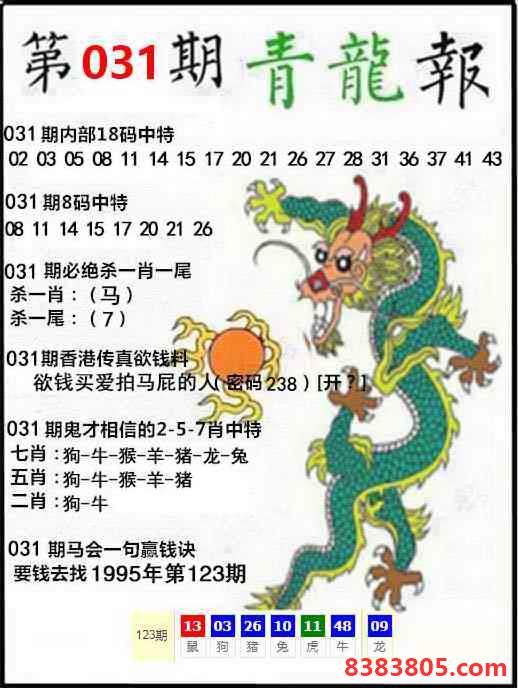 第031期青龍報
031期内部18码中特
02 03 05 08 11 14 15 17 20 21 26 27 28 31 36 37 41 43
031期8码中特
08 11 14 15 17 20 21 26
031 期必绝杀一肖一尾
杀一肖：（马）
杀一尾：（7）
031期香港传真欲钱料
欲钱买爱拍马屁的人(密码238)[开?]
031期鬼才相信的2-5-7肖中特
七肖：狗-牛-猴-羊-猪-龙-兔
五肖：狗-牛-猴-羊-猪
二肖：狗-牛
031 期马会一句赢钱诀
要钱去找1995年第123期
123期 13 03 26 10 11 48 09
鼠 狗 猪 兔 虎 牛 龙
8383805.com